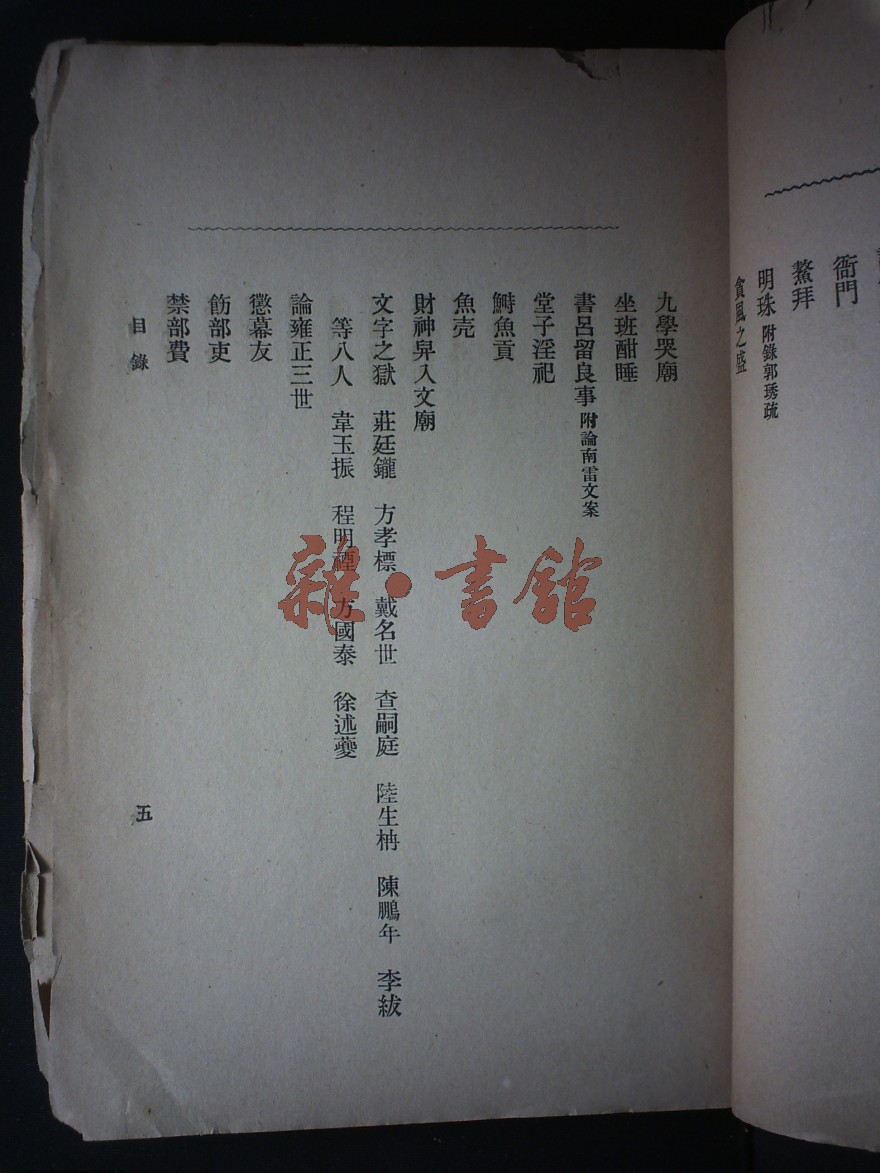 衙門
鰲拜
明珠 附錄郭琇疏
貪風之盛
九學哭廟
坐班酣睡
書呂留良事 附論南雷文案
堂子淫祀
鰣魚貢
魚壳
財神舁入文廟
文字之獄 莊廷鑨 方孝標 戴名世 查嗣庭 陸生枏 陳鵬年 李紱
等八人 韋玉振 程明禋 方國泰 徐述夔
論雍正三世
懲幕友
飭部吏
禁部費
目錄
五
雜·書館